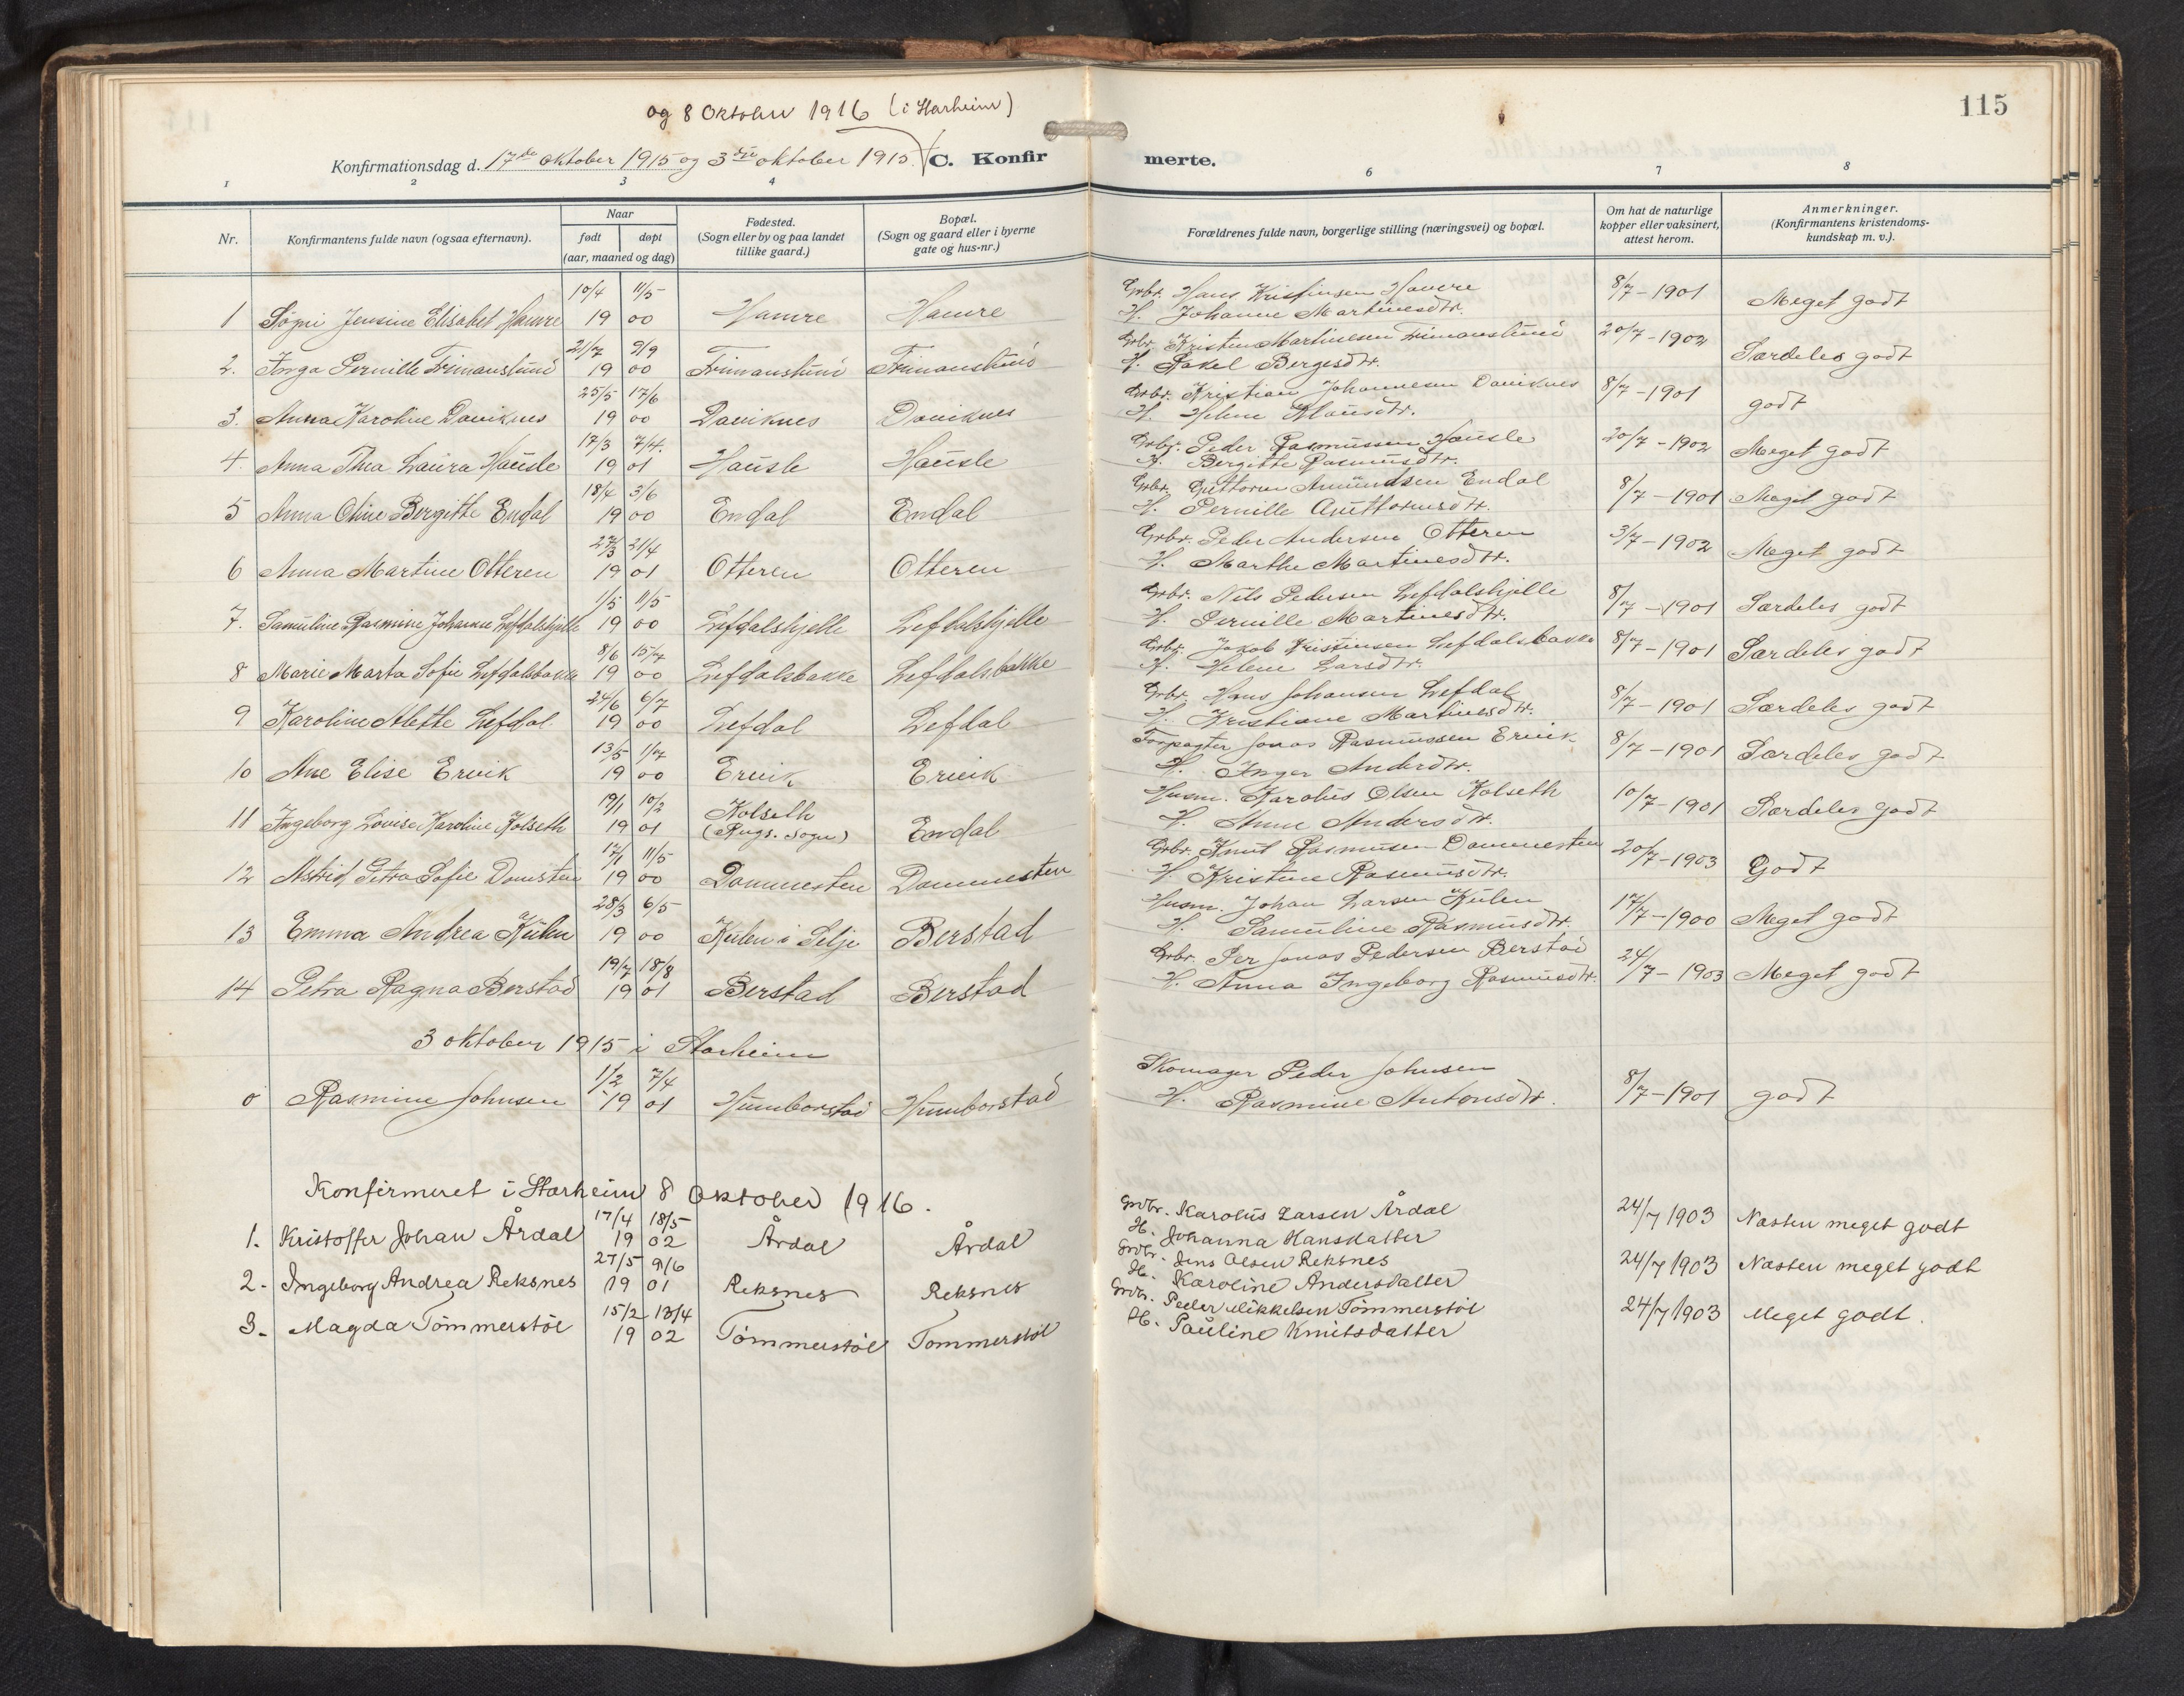 115
og 8 Oktober 1916 (i Starheim)
Konfirmationsdag d. 17de oktober 1915 og 3die oktober 1915. C. Konfirmerte.
1 2 3 4 6 7 8
Nr. Konfirmantens fulde navn (ogsaa efternavn). Naar født døpt (aar, maaned og dag) Fødested. (Sogn eller by og paa landet tillike gaard.) Bopæl. (Sogn og gaard eller i byerne gate og hus-nr.) Forældrenes fulde navn, borgerlige stilling (næringsvei) og bopæl. Om hat de naturlige kopper eller vaksinert, attest herom. Anmerkninger. (Konfirmantens kristendoms-kundskap m. v.).
10/4 11/5 Grbr. Hans Kristensen Hamre 8/7-1901
1 Jensine Elisabet Hamre 19 00 Hamre Hamre H. Johanne Martinesdtr. Meget godt
21/7 9/9 Grbr. Kristen Martinesen 20/7-1902
2. Inga Pernille 19 00 H. Rakel Bergesdtr. Særdeles godt
25/5 17/6 Grbr. Kristian Johannesen Daviknes 8/7-1901
3. Anna Karoline Daviknes 19 00 Daviknes Daviknes H. Helene Klausdtr. godt
17/3 7/4. Grbr. Peder Rasmussen Hausle 20/7-1902
4. Anna Thea Laura Hausle 19 01 Hausle Hausle H. Bergitte Rasmusdtr. Meget godt
18/4 3/6 Grbr. Guttorm Amundsen Endal 8/7-1901
5 Anna Oline Bergitte Endal 19 00 Endal Endal H. Pernille Guttormsdtr. Meget godt
27/3 21/4 Grbr. Peder Andersen Otteren 3/7-1902
6 Anna Martine Otteren 19 01 Otteren Otteren H. Marthe Martinesdtr. Meget godt
1/5 11/5 Grbr. Nils Pedersen Lefdalshjelle 8/7-1901
7. Samuline Rasmine Johanne Lefdalshjelle 19 00 Lefdalshjelle Lefdalshjelle H. Pernille Martinesdtr. Særdeles godt
8/6 15/7 Grbr. Jakob Kristensen Lefdalsbakke 8/7-1901
8 Marie Marta Sofie Lefdalsbakke 19 00 Lefdalsbakke Lefdalsbakke H. Helene Larsdtr. Særdeles godt
24/6 6/7 Grbr. Hans Johansen Lefdal 8/7-1901
9 Karoline Alette Lefdal 19 00 Lefdal Lefdal H. Kristiane Martinesdtr. Særdeles godt
13/5 1/7 Forpagter Jonas Rasmussen Ervik 8/7-1901
10 Ane Elise Ervik 19 00 Ervik Ervik H. Inger Andersdtr. Særdeles godt
19/1 10/2 Kolseth Husm. Karolus Olsen Kolseth 10/7-1901
11 Ingeborg Lovise Karoline Kolseth 19 01 (Rugs. sogn) Endal H. Anne Andersdtr. Særdeles godt
17/1 11/5 Grbr. Knut Rasmusen Dammesten 20/7-1903
12 Astrid Petra Sofie Damsten 19 00 Dammesten Dammesten H. Kristine Rasmusdtr. Godt
28/3 6/5 Husm. Johan Larsen Kulen 17/7-1900
13 Emma Andrea Kulen 19 00 Kulen i Selje Berstad H. Samuline Rasmusdtr. Meget godt
19/7 18/8 Grbr. Per Jonas Pedersen Berstad 24/7-1903
14 Petra Ragna Berstad 19 01 Berstad Berstad H. Anna Ingeborg Rasmusdtr. Meget godt
3 oktober 1915 i Starheim
1/2 7/4 Skomager Peder Johnsen 8/7-1901
0 Rasmine Johnsen 19 01 Humborstad Humborstad H. Rasmine Antonsdtr. godt
Konfirmeret i Starheim 8 Oktober 1916.
17/4 18/5 Grdbr. Karolus Larsen Årdal 24/7 1903
1. Kristoffer Johan Årdal 19 02 Årdal Årdal H. Johanna Hansdatter Næsten meget godt
27/5 9/6 Grdbr. Jens Olsen Reksnes 24/7 1903
2. Ingeborg Andrea Reksnes 19 01 Reksnes Reksnes H. Karoline Andersdatter Næsten meget godt
15/2 13/4 Grdbr. Peder Mikkelsen Tömmerstöl 24/7 1903
3. Magda Tömmerstöl 19 02 Tömmerstöl Tömmerstöl H. Pauline Knutsdatter Meget godt.